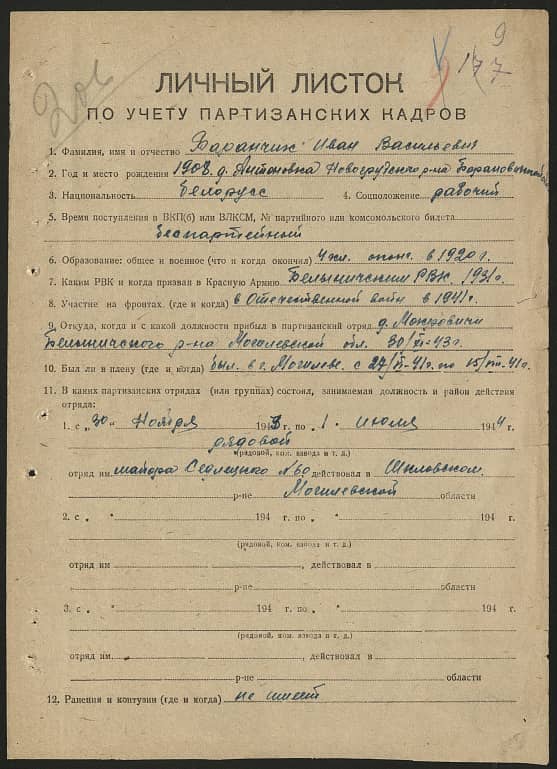 9
177
206
ЛИЧНЫЙ ЛИСТОК
ПО УЧЕТУ ПАРТИЗАНСКИХ КАДРОВ
1. Фамилия, имя и отчество Баранчик Иван Васильевич
2. Год и место рождения 1908 д. Антоновка Новогрудского р-на Барановичской
3. Национальность Белорусс 4. Соцположение рабочий
5. Время поступления в ВКП(б) или ВЛКСМ, № партийного или комсомольского билета
беспартейный
6. Образование: общее и военное (что и когда окончил) 4 кл. в 1920 г.
7. Каким РВК и когда призван в Красную Армию Белыничским РВК. 1931 г.
8. Участие на фронтах (где и когда) в Отечественной войн в 1941 г.
9. Откуда, когда и с какой должности прибыл в партизанский отряд д.
Белыничского р-на Могилевской обл. 30/XI-43 г.
10. Был ли в плену (где и когда) был. в г. Могилеве. с 27/ -41 г. по 15/ -41 г.
11. В каких партизанских отрядах (или группах) состоял, занимаемая должность и район действия
отряда:
1. с „30" Ноября 1943 г. по „1. июля 1944 г.
рядовой
(рядовой, ком. взвода и т. д.)
отряд им. майора действовал в Шкловском
р-не Могилевской области
2. с „ " 194 г. по „ " 194 г.
(рядовой, ком. взвода и т. д.)
отряд им , действовал в
р-не области
3. с „ " 194 г. по „ " 194 г.
(рядовой, ком. взвода и т. д.)
отряд им. , действовал в
р-не области
12. Ранения и контузии (где и когда) не имеет